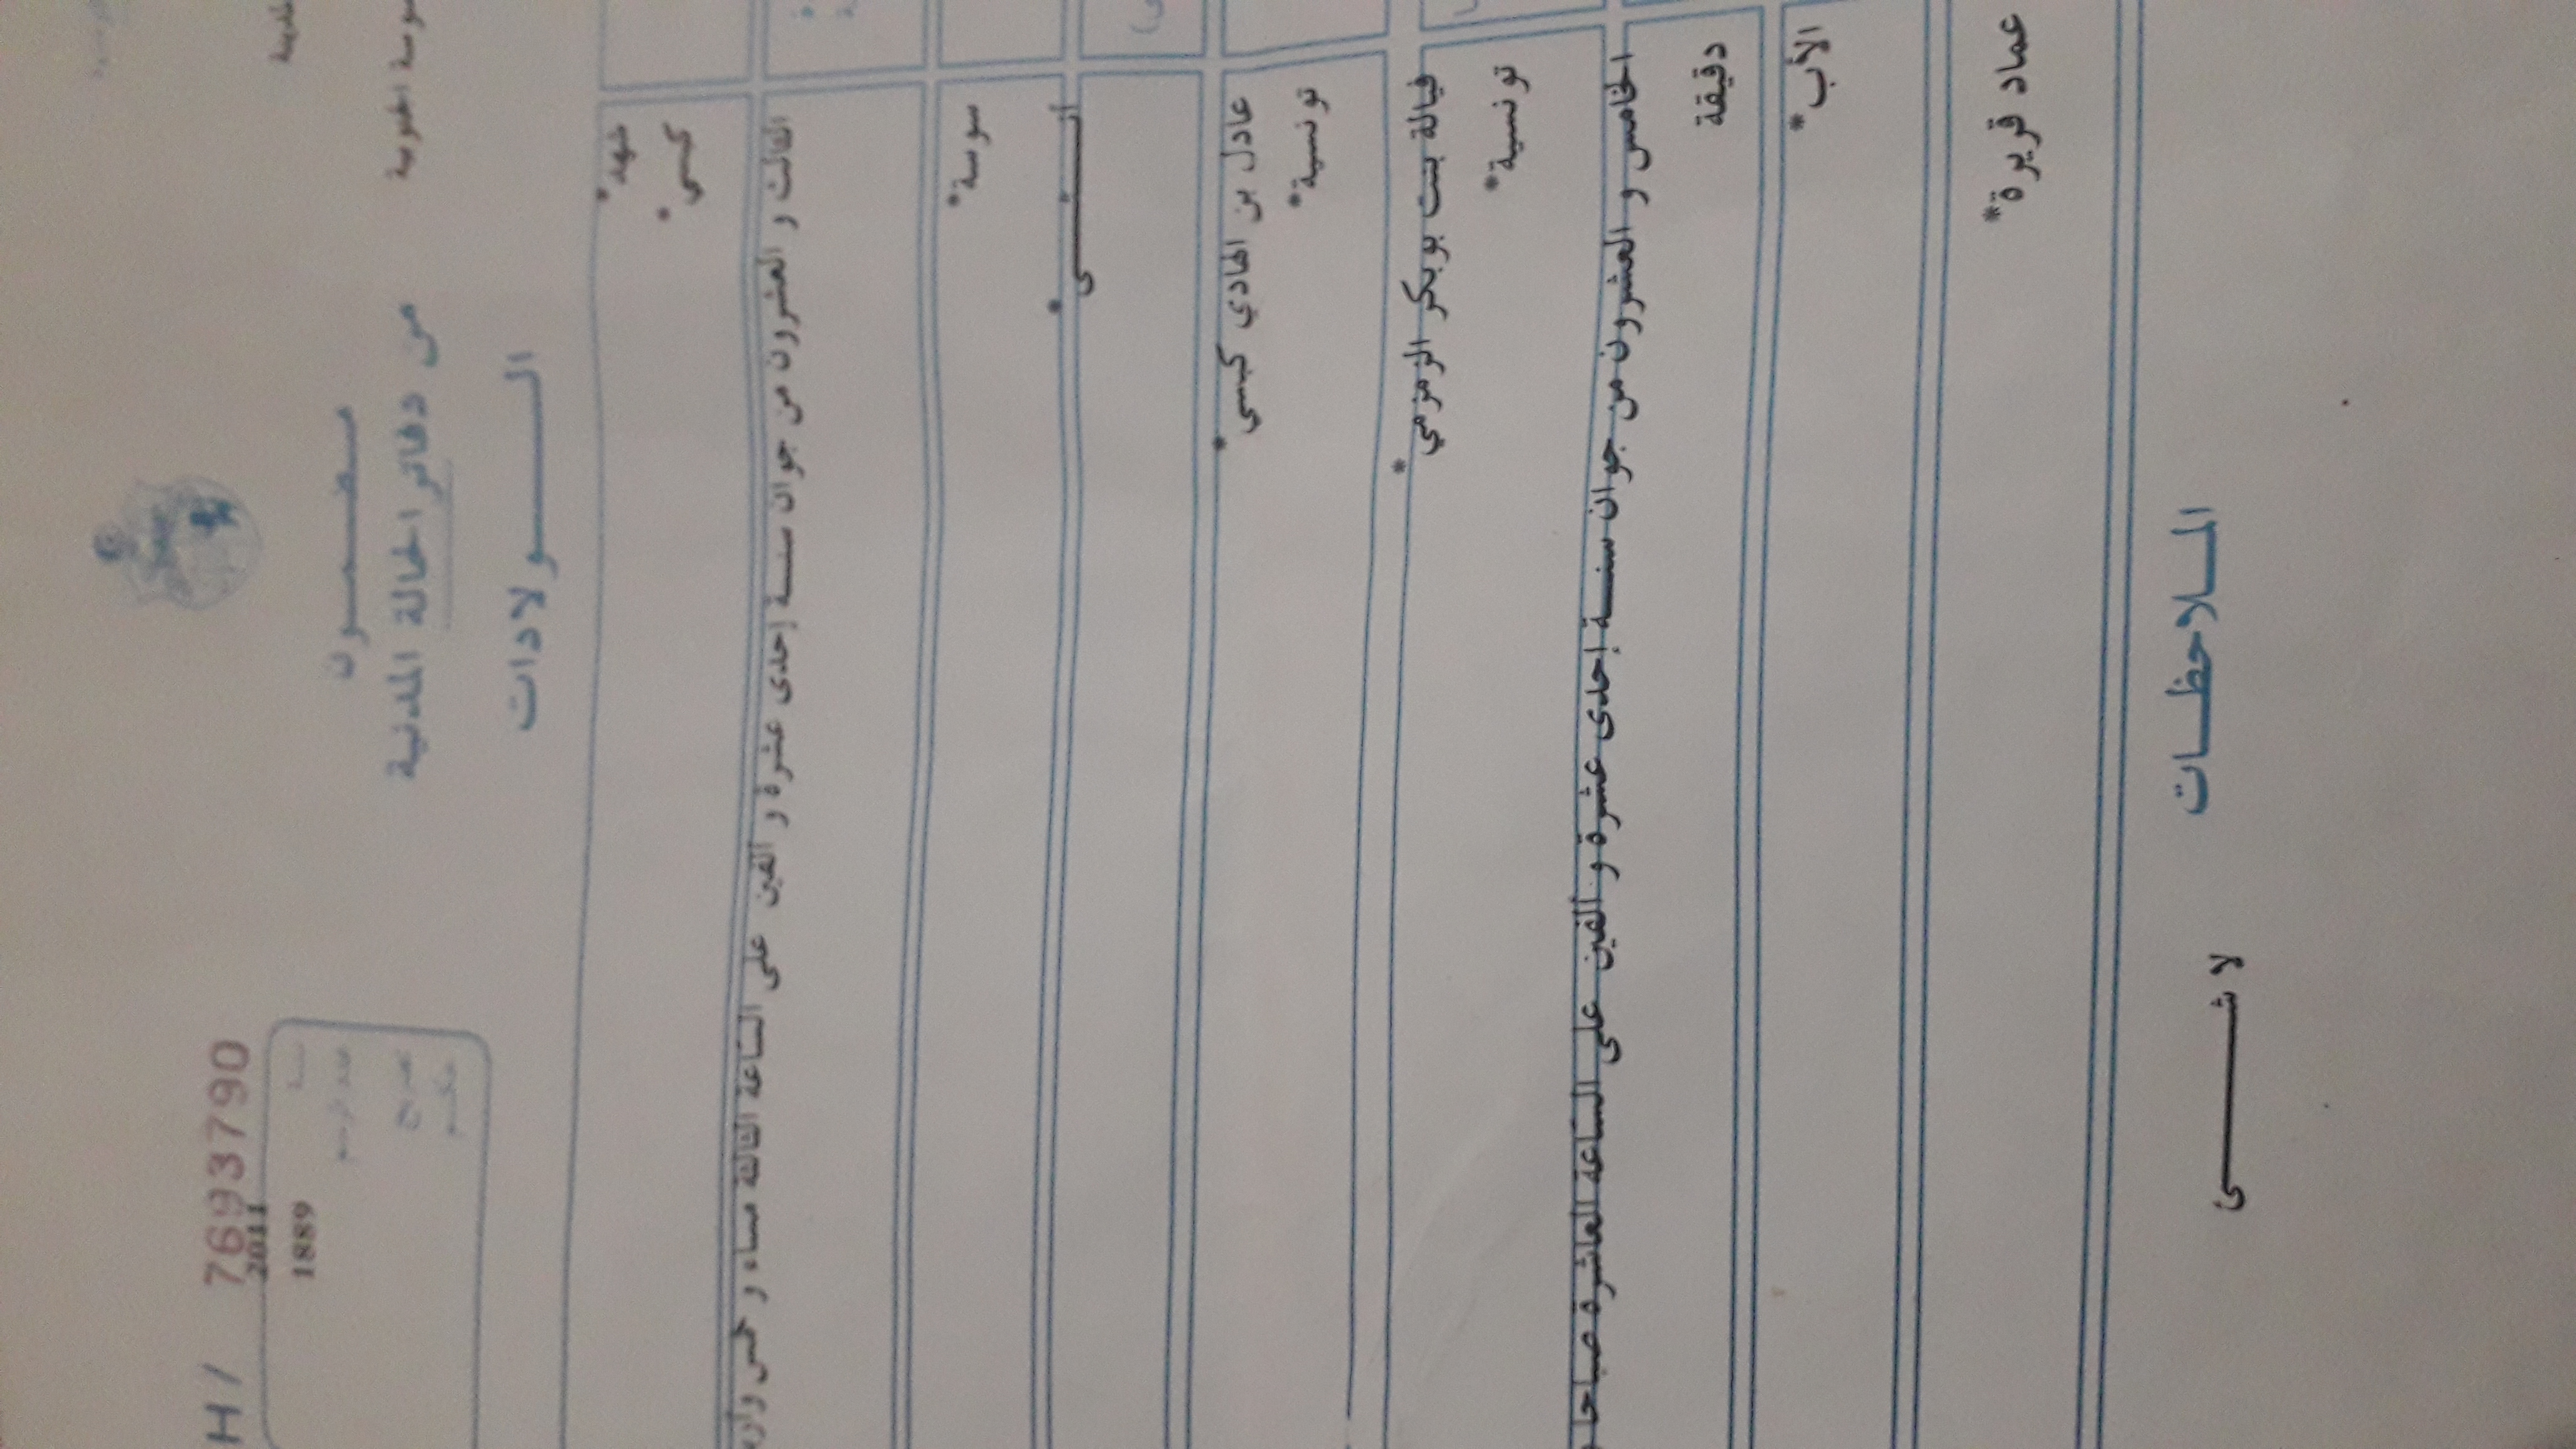 H / 769379O
2011
1889
سنة
عدد الرسم
مضمـــون
من دفاتر الحالة المدنية
الـــــولادات
سوسة المدينة
شهد*
كبسي*
الثالث و العشرون من جوان سنـــة إحدى عشرة و ألفين على الساعة الثالثة مساء و خمس وأر
سوسة*
أنـــثـــى*
عادل بن الهادي كبسي*
تونسية*
فيالة بنت بوبكر الزمزمي*
تونسية*
الخامس و العشرون من جوان سنـــة إحدى عشرة و ألفين على الساعة العاشرة صباحا و
دقيقة
الأب*
عماد قريرة*
المـــلاحظـــات
لا شـــــى